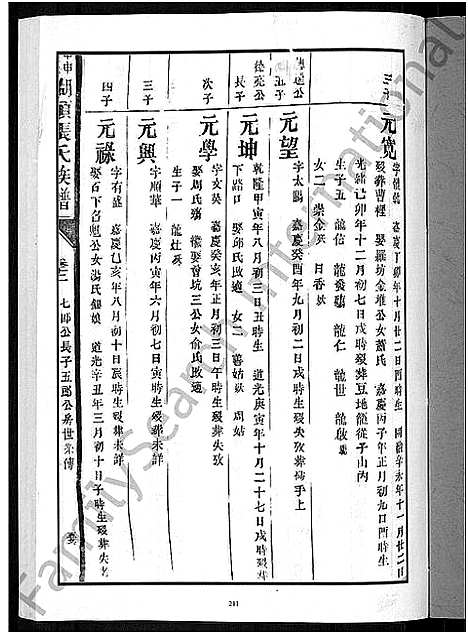 三子
元寬
嘉慶丁卯年十月廿二日酉時生
殁葬曹裡 娶羅坊金堆公女蕭氏 嘉慶丙子年正月初九日酉時生
光緒己卯年十二月初七日戌時殁葬豆地龍從子山內
生子五 龍信 龍發 龍仁 龍世 龍啟
女二 崇金 目香
五子
元望
字太 嘉慶癸酉年九月初二日戌時生殁失攷葬手上
徐亮公
長子
元坤
乾隆甲寅年八月初三日丑時生 道光庚寅年十月二十七日戌時殁葬
下路口 娶邱氏改適 女二 喜姑 周姑
次子
元學
字文 嘉慶癸亥年正月初三日午時生殁葬失攷
娶周氏殤 繼娶曾坑三公女俞氏改適
生子一 龍灶
三子
元興
字順華 嘉慶丙寅年六月初七日寅時生殁葬未詳
四子
元祿
字有盛 嘉慶己亥年八月初十日辰時生殁葬未詳
娶百下名魁公女湯氏 娘 道光辛丑年三月初十日子時生殁葬失考
湖 張氏族譜
卷二
七郎公長子五郎公裔世系傳
211
FamilySearch International